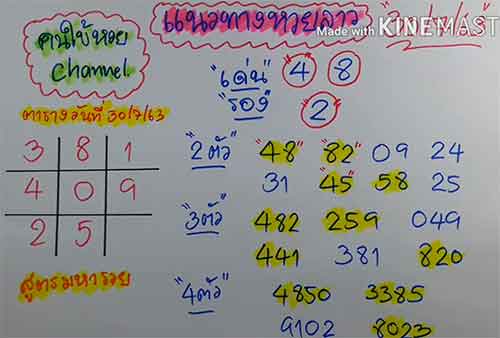 แนวทางหวยลาว
Made with KINEMASTER
คนใบ้หวย
Channel
"เด่น" 4 8
"รอง" 2
ตารางวันที่ 30/7/63
3 8 1
4 0 9
2 5
สูตรมหารวย
"2ตัว" "48" "82" 09 24
31 "45" 58 25
"3ตัว" 482 259 049
441 381 820
"4ตัว" 4850 3385
9102 8023